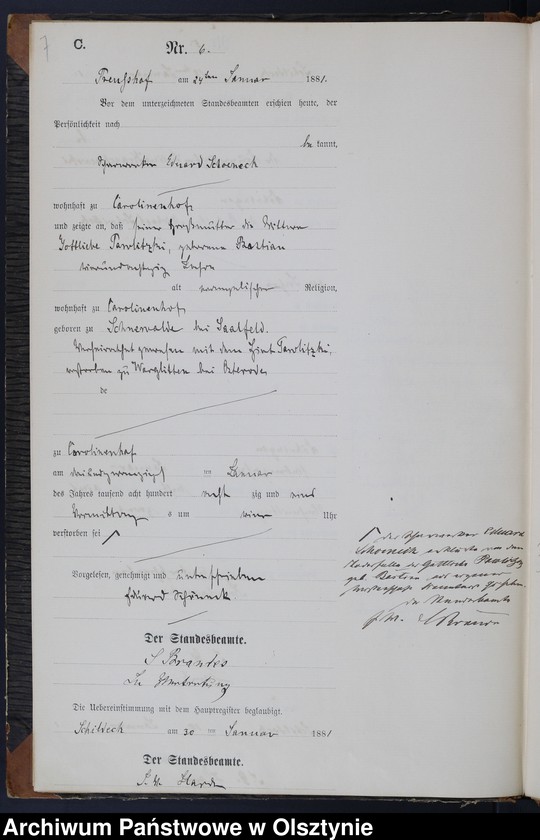 7
C.
Nr. 6.
am 24ten Januar 1881.
Vor dem unterzeichneten Standesbeamten erschien heute, der
Persönlichkeit nach
be kannt,
Eduard Schoeneck
wohnhaft zu Carolinenhof,
und zeigte an, daß seine Großmutter die Wittwe
Gottliebe Pawlitzki, geborene Bastian
alt evangelischer Religion,
wohnhaft zu Carolinenhof
geboren zu bei Saalfeld.
Verheirathet gewesen mit dem Pawlitzki,
verstorben zu Warglitten bei Osterode
de
zu Carolinenhof
am dreiundzwanzigsten ten Januar
des Jahres tausend acht hundert acht zig und eins
Vormittag s um vier Uhr
verstorben sei
Vorgelesen, genehmigt und unterschrieben
Eduard Schöneck
Der Standesbeamte.
In Vertretung
Die Uebereinstimmung mit dem Hauptregister beglaubigt.
Schildeck am 30 ten Januar 1881
Der Standesbeamte.
der Eduard
Schoeneck erklärte von dem
der Gottliebe
geb. Bastian aus eigener
zu haben.
Archiwum Państwowe w Olsztynie